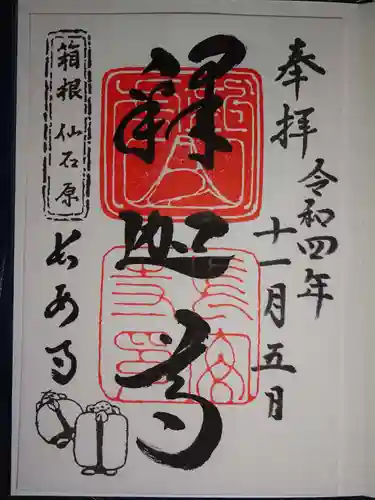 奉拝
令和四年
十一月五日
釋迦尊
箱根仙石原
長安寺